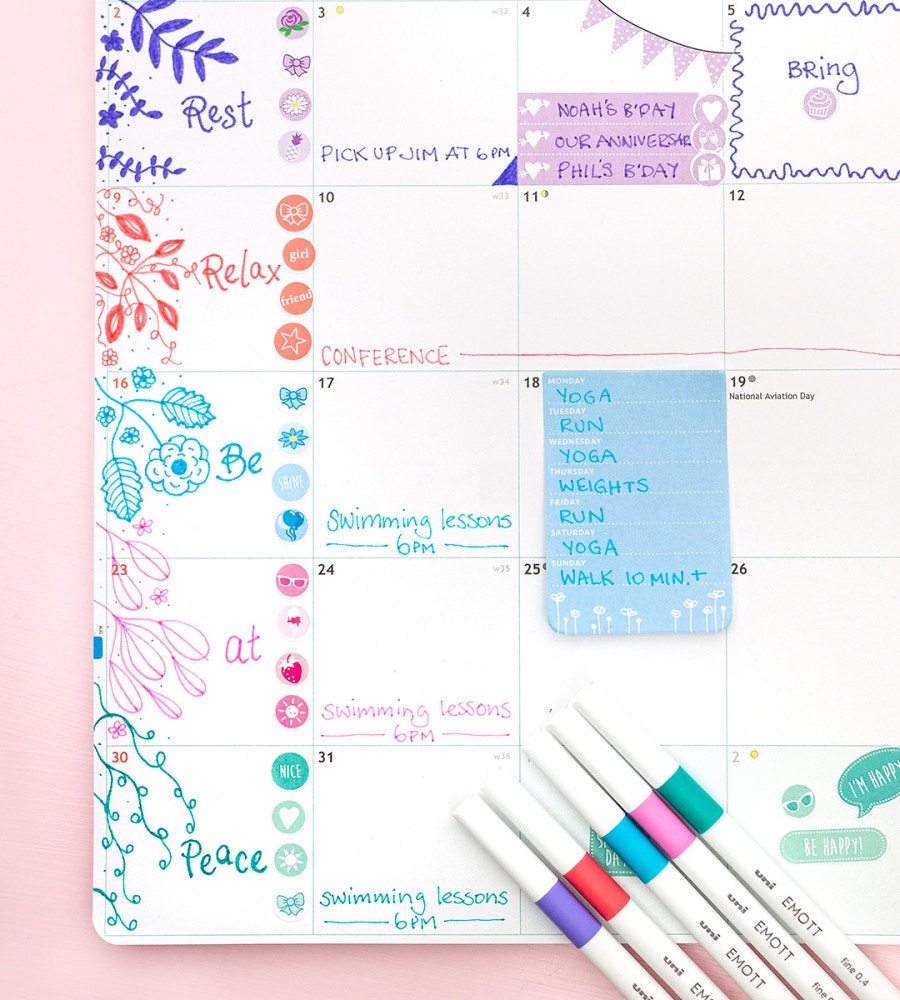 2
3
w32
4
5
Rest
PICK UP JIM AT 6PM
NOAH'S B'DAY
OUR ANNIVERSAR
PHIL'S B'DAY
BRing
9
10
w33
11
12
Relax
girl
friend
CONFERENCE
16
17
w34
18
19
National Aviation Day
Be
SHINE
Swimming lessons
6PM
MONDAY
YOGA
TUESDAY
RUN
WEDNESDAY
YOGA
THURSDAY
WEIGHTS
FRIDAY
RUN
SATURDAY
YOGA
SUNDAY
WALK 10 MIN.+
23
24
w35
25
26
at
Swimming lessons
6PM
30
31
w36
2
Peace
NICE
Swimming lessons
6PM
I'M HAPPY
BE HAPPY!
uni EMOTT fine 0.4
uni EMOTT fine
uni EMOTT
uni EM
uni